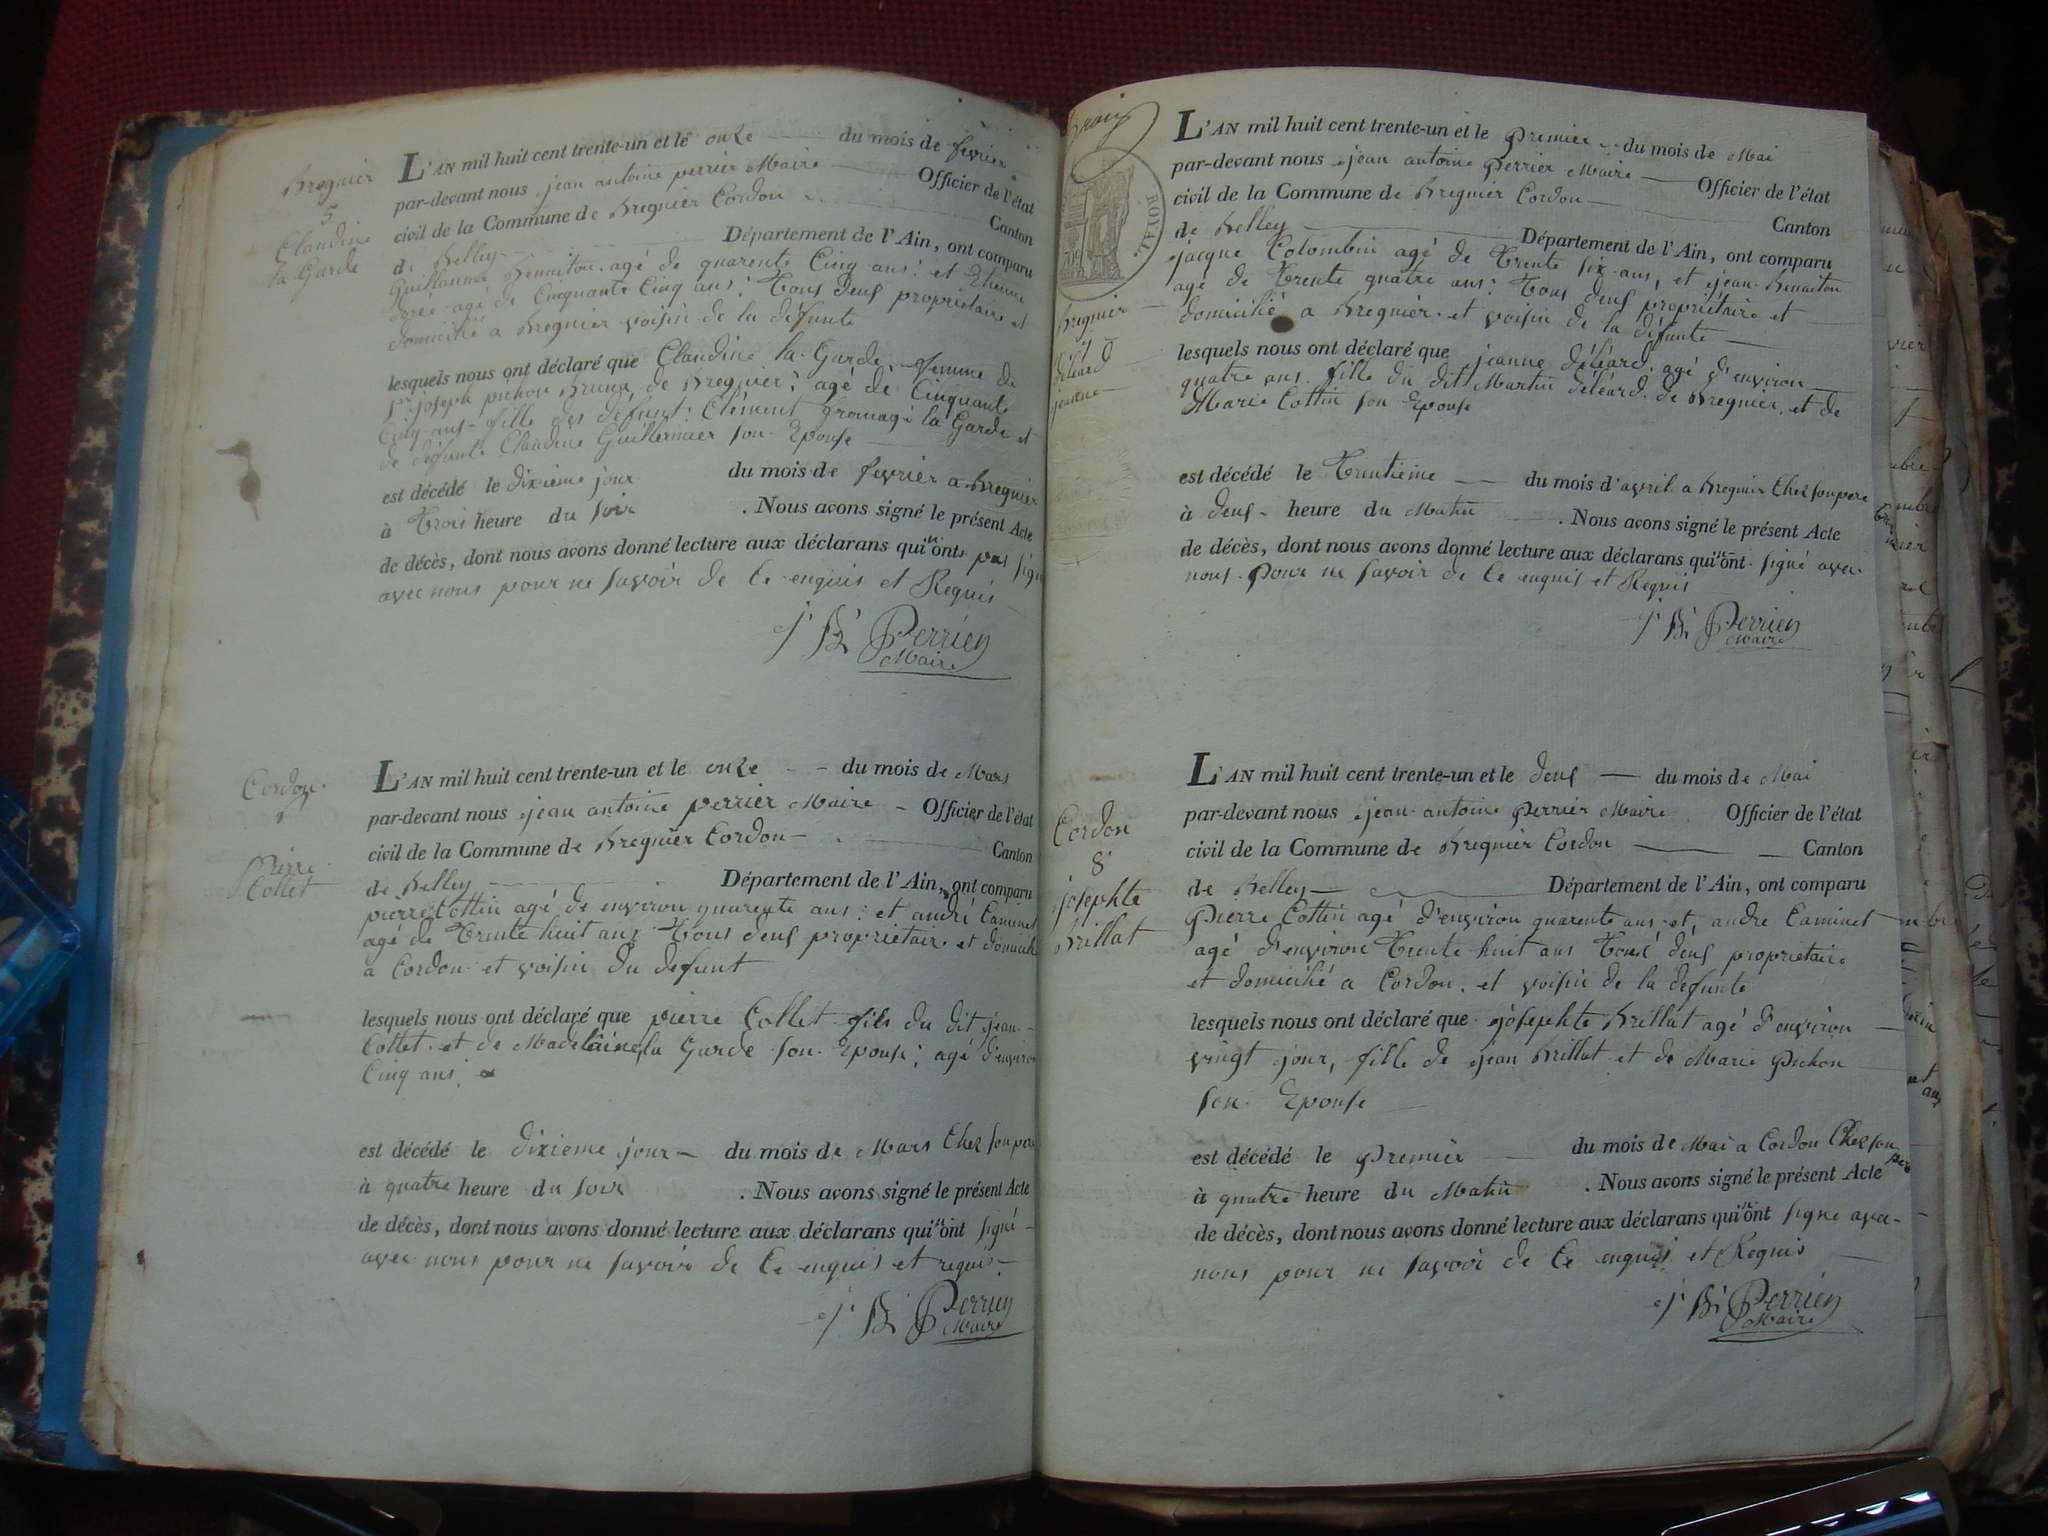 Bregnier
5
Claudine
la Garde
L'AN mil huit cent trente-un et le onze du mois de fevrier
par-devant nous jean antoine perrier Maire Officier de l'état
civil de la Commune de Bregnier Cordon Canton
de Belley Département de l'Ain, ont comparu
Guillaume agé de quarente Cinq ans: et Etienne
agé de Cinquante Cinq ans: tous deux propriétaire et
domicilié a Bregnier voisin de la défunte
lesquels nous ont déclaré que Claudine la Garde femme de
Sr joseph pichon de Bregnier; agé de Cinquante
Cinq ans fille des défunt Clément fromagé la Garde et
de défunte Claudine Guillermier son Epouse
est décédé le dixieme jour du mois de fevrier a Bregnier
à trois heure du soir . Nous avons signé le présent Acte
de décès, dont nous avons donné lecture aux déclarans qui n'ont pas signé
avec nous pour ne savoir de ce enquis et Requis
j' Bi Perrier
Maire
Cordon
Pierre
Collet
L'AN mil huit cent trente-un et le onze du mois de Mars
par-devant nous jean antoine perrier Maire Officier de l'état
civil de la Commune de Bregnier Cordon Canton
de Belley Département de l'Ain, ont comparu
pierre Cottin agé de environ quarente ans: et andré Caminet
agé de trente huit ans tous deux proprietair et domicilié
a Cordon et voisin du defunt
lesquels nous ont déclaré que pierre Collet fils du dit jean
Collet et de Madelaine la Garde son Epouse; agé d'environ
Cinq ans
est décédé le dixieme jour du mois de Mars chez son pere
à quatre heure du soir . Nous avons signé le présent Acte
de décès, dont nous avons donné lecture aux déclarans qui n'ont signé
avec nous pour ne savoir de ce enquis et requis
j' Bi Perrier
Maire
ROYAL
Bregnier
7
déléard
jeanne
L'AN mil huit cent trente-un et le premier du mois de Mai
par-devant nous jean antoine perrier Maire Officier de l'état
civil de la Commune de Bregnier Cordon Canton
de Belley Département de l'Ain, ont comparu
jacque Colombin agé de trente six ans, et jean Benaiton
agé de trente quatre ans: tous deux propriétaire et
domicilié a Bregnier et voisin de la défunte
lesquels nous ont déclaré que jeanne déléard agé d'environ
quatre ans fille du dit Martin déléard de Bregnier, et de
Marie Cottin son Epouse
est décédé le trentieme du mois d'avril a Bregnier chez son pere
à deux heure du Matin . Nous avons signé le présent Acte
de décès, dont nous avons donné lecture aux déclarans qui n'ont signé avec
nous pour ne savoir de ce enquis et Requis
j' Bi Perrier
Maire
Cordon
8
josephte
Brillat
L'AN mil huit cent trente-un et le deux du mois de Mai
par-devant nous jean antoine perrier Maire Officier de l'état
civil de la Commune de Bregnier Cordon Canton
de Belley Département de l'Ain, ont comparu
Pierre Cottin agé d'environ quarente ans, et, andre Caminet
agé d'environ trente huit ans tous deux proprietaire
et domicilié a Cordon, et voisin de la defunte
lesquels nous ont déclaré que josephte Brillat agé d'environ
vingt jour, fille de jean Brillat et de Marie Pichon
son Epouse
est décédé le premier du mois de Mai a Cordon chez son pere
à quatre heure du Matin . Nous avons signé le présent Acte
de décès, dont nous avons donné lecture aux déclarans qui n'ont signé avec
nous pour ne savoir de ce enquis et Requis
j' Bi Perrier
Maire